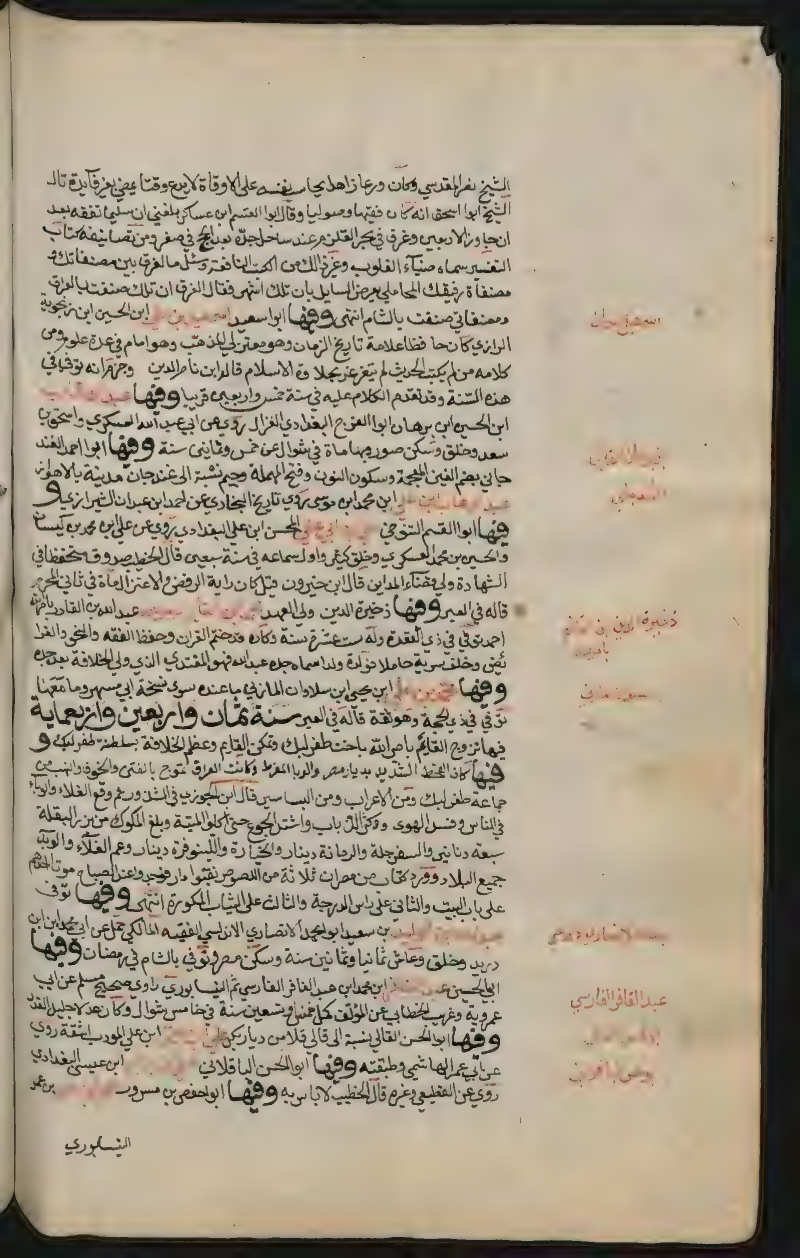 الشيخ نصر المقدسي وكان ورعا زاهدا يحاسب نفسه على الاوقاة لا يدع وقتا يمضي بغير فائدة قال
الشيخ ابوا اسحق انه كان فقيها وصوليا وقال ابوا القسم ابن عساكر بلغني ان سليما تفقه بعد
ان جاوز الاربعين وغرق في بحر القلزم عند ساحل جدة بعد الحج في صفر ومن تصانيفه كتاب
التفسير سماه ضيآء القلوب وغير ذلك من الكتب النافعة وسئل ما الفرق بين مصنفاتك و
مصنفاة رفيقك المحاملي يعرض السايل بان تلك اشهر فقال الفرق ان تلك صنفت بالعراق
ومصنفاتي صنفت بالشام انتهى وفيها ابوا سعيد اسمعيل بن علي ابن الحسين ابن زنجوية
الرازي كان حافظا علامة تاريخ الزمان وهو معتزلي المذهب وهو امام في عدة علوم ومن
كلامه من لم يكتب الحديث لم يتغرغر بحلاوة الاسلام قاله ابن ناصر الدين وجزم انه توفي في
هذه السنة وقد تقدم الكلام عليه في سنة خمس واربعين قريبا وفيها عبد الوهاب
ابن الحسين ابن برهان ابوا الفرج البغدادي الغزال روي عن ابي عبد الله العسكري واسحق بن
سعد وخلق وسكن صور وبها ماة في شوال عن خمس وثمانين سنة وفيها ابوا احمد الغند
جاني بضم الغين المعجمة وسكون النون وفتح المهملة وجيم نسبة الى غندجان مدينة بالاهواز
عبد الوهاب ابن علي ابن محمد ابن موسى روي تاريخ البخاري عن احمد ابن عبدان الشيرازي و
فيها ابوا القسم التنوخي علي ابن ابي علي المحسن ابن علي البغدادي روي عن علي ابن محمد بن كيسان
والحسين بن محمد العسكري وخلق كثير واول سماعه في سنة سبعين قال الخطيب صدوق متحفظا في
الشهادة ولي قضآء المداين قال ابن خيرون قيل كان راية الرفض والاعتزال ماة في ثاني المحرم
قاله في العبر وفيها ذخيرة الدين ولي العهد عبد الله بن القادر بالله
احمد توفي في ذي القعدة وله ست عشرة سنة وكان قد ختم القران وحفظ الفقه والنحو والفرا
ئض وخلف سرية حاملا فولدة ولدا سماه جده عبد الله فهو المقتدي الذي ولي الخلافة بعد جده
وفيها محمد بن علي ابن يحيى ابن سلوان المازني ما عنده سوى نسخة ابي مسهر وما معها
توفي في ذي الحجة وهو ثقة قاله في العبر سنة ثمان واربعين واربعماية
فيها تزوج القائم بامر الله باخت طغرلبك وتمكن القايم وعظم الخلافة بسلطنة طغرلبك و
فيها كان القحط الشديد بديار مصر والوبا المفرط وكانت العراق تموج بالفتن والخوف والنهب من
جماعة طغرلبك ومن الاعراب ومن البساسيري قال ابن الجوزي في الشذور عم وقع الغلاء والوباء
في الناس وفسد الهوى وكثر الذباب واشتد الجوع حتى اكلوا الميتة وبلغ المكوك من بزر البقلة
سبعة دنانير والسفرجلة والرمانة دينار والخيارة واللينوفرة دينار وعم الغلآء والوباء
جميع البلاد وورد كتاب من مصر ان ثلاثة من اللصوص نقبوا دار فوجدوا عند الصباح موتا احدهم
على باب البيت والثاني على راس الدرجة والثالث على الثياب المكورة انتهى وفيها توفى
عبد الله ابن الوليد بن سعيد ابوا محمد الانصاري الاندلسي الفقيه المالكي حمل عن ابي محمد ابن ابي
دريد وخلق وعاش ثمانيا وثمانين سنة وسكن مصر وتوفي بالشام في رمضان وفيها
ابي الحسين عبد الغافر ابن محمد ابن عبد الغافر الفارسي ثم النيسابوري راوي صحيح مسلم عن ابن
عمروية وغريب الخطابي عن المؤلف كمل خمس وتسعين سنة في خامس شوال وكان عدلا جليل القدر
وفيها ابوا الحسن القالي نسبة الى قالي قلا من ديار بكر علي بن احمد ابن علي المودب الثقة روي
عن ابي عمر الهاشمي وطبقته وفيها ابوا الحسن الباقلاني ابن عيسى البغدادي
روي عن القطيعي وغيره قال الخطيب لا باس به وفيها ابوا حفص بن مسرور بن عمر
النيسابوري
اسمعيل بن
عبد الوهاب
ذخيرة الدين بن القائم
بامر الله
عبد الغافر الفارسي